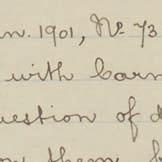 n. 1901, No. 73
with barn
uestion of d